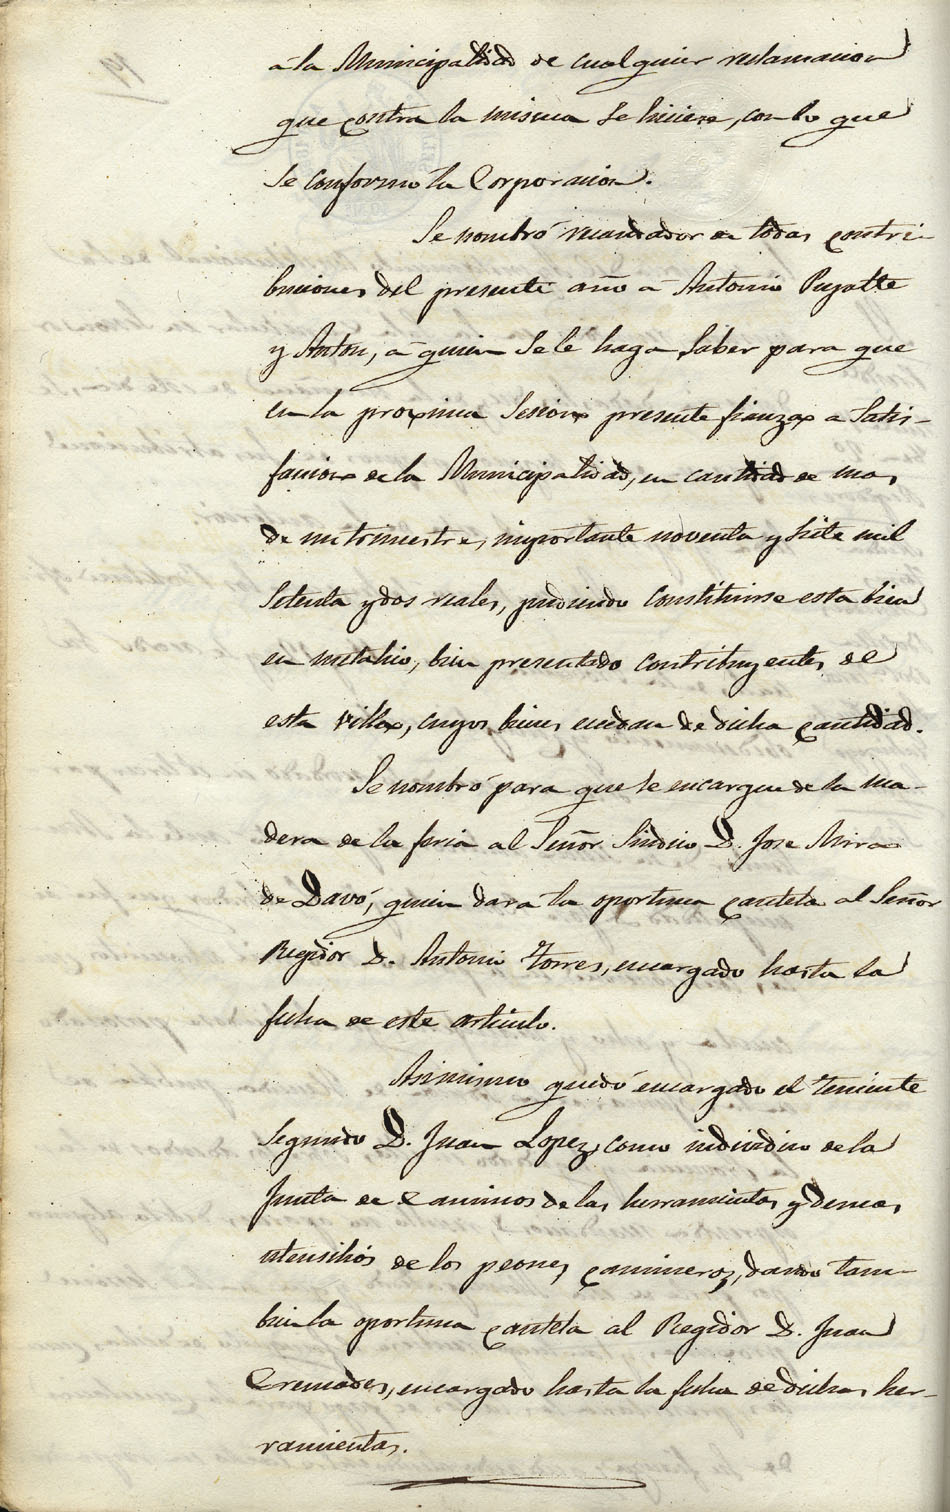 a la Municipalidad de cualquier reclamacion
que contra la misma se hiciere, con lo que
se conformó la Corporacion.
Se nombró recaudador de todas contri-
buciones del presente año a Antonio Puyalte
y Anton, a quien se le haga saber para que
en la proxima Sesion presente fianza a Satis-
facion de la Municipalidad, en cantidad de mas
de un trimestre, importante noventa y siete mil
setenta y dos reales, pudiendo constituirse esta bien
en metalico, bien presentado contribuyentes de
esta villa, cuyos bienes escedan de dicha cantidad.
Se nombró para que se encargue de la ma-
dera de la feria al Señor Sindico D. Jose Mira
de Davó, quien dara la oportuna cautela al Señor
Regidor D. Antonio Torres, encargado hasta la
fecha de este articulo.
Asimismo quedó encargado el Teniente
segundo D. Juan Lopez, como individuo de la
Junta de Caminos de las herramientas y demas
utensilios de los peones camineros, dando tam-
bien la oportuna cautela al Regidor D. Juan
Cremades, encargado hasta la fecha de dichas her-
ramientas.